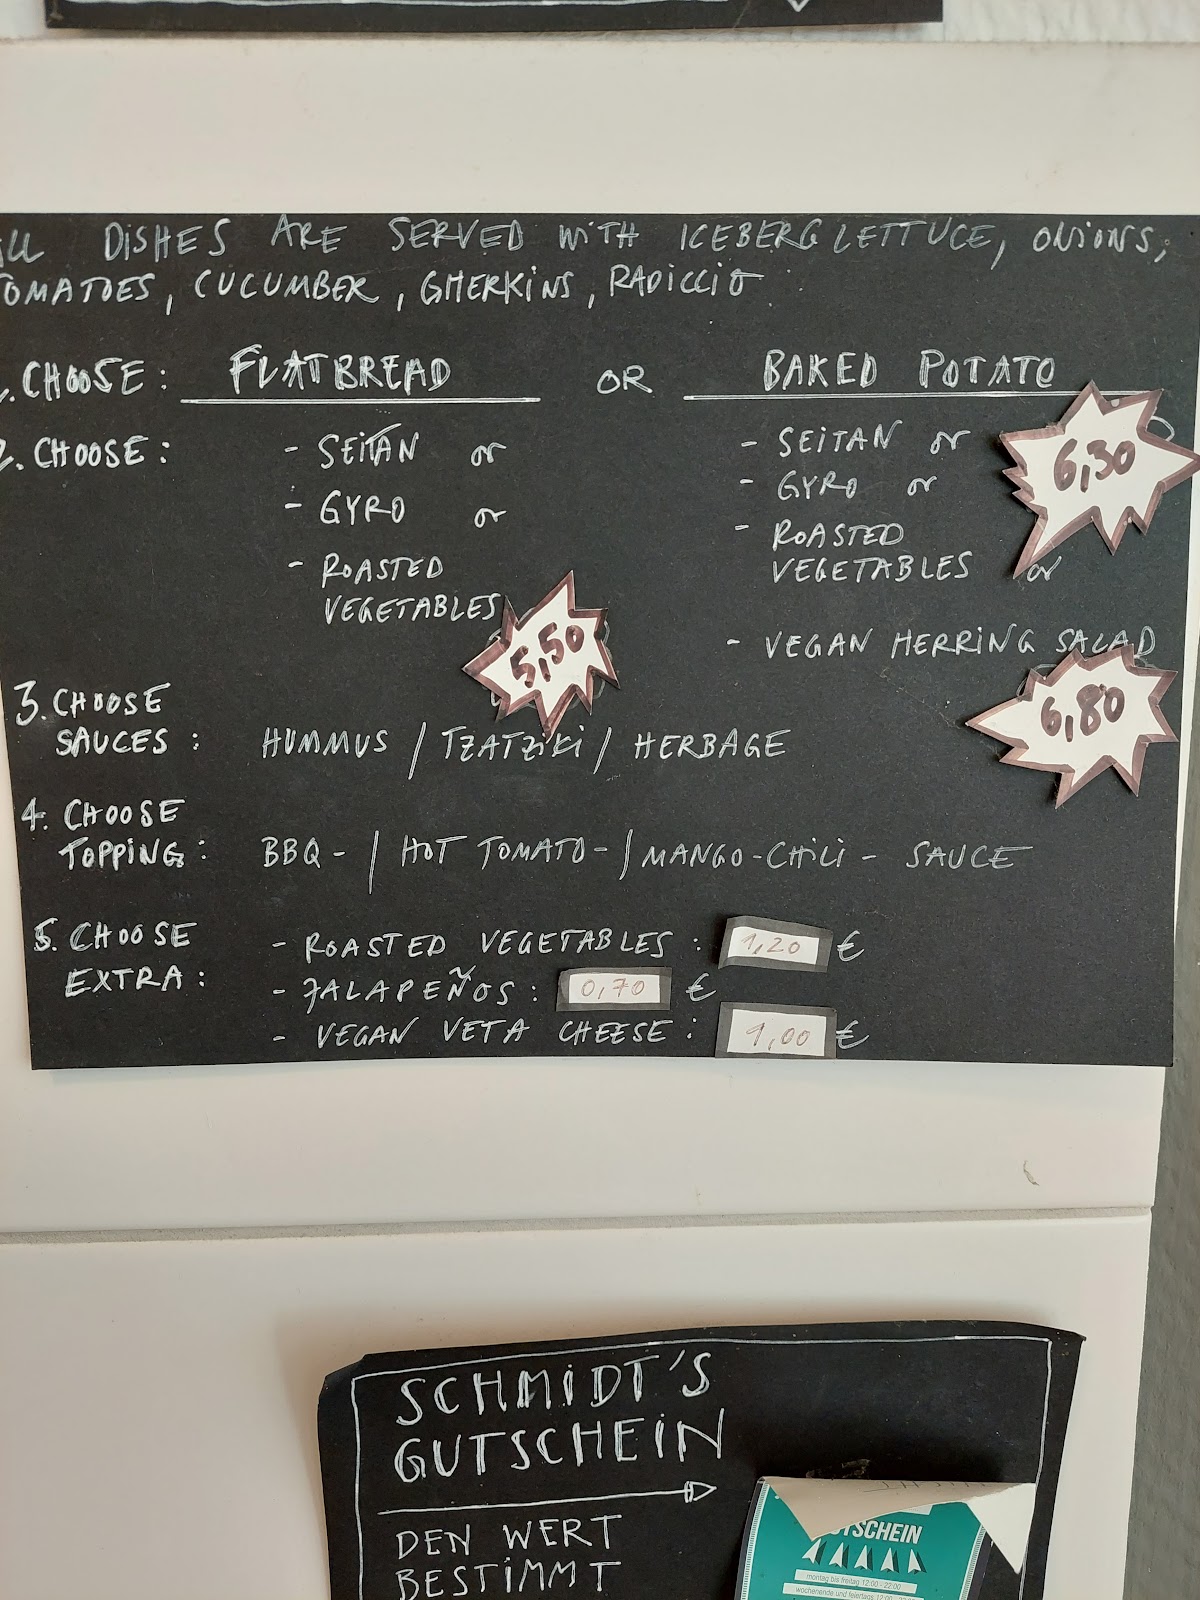 ALL DISHES ARE SERVED WITH ICEBERG LETTUCE, ONIONS,
TOMATOES, CUCUMBER, GHERKINS, RADICCIO
1. CHOOSE: FLATBREAD OR BAKED POTATO
2. CHOOSE: - SEITAN or - SEITAN or 6,30
- GYRO or - GYRO or
- ROASTED VEGETABLES 5,50 - ROASTED VEGETABLES or
- VEGAN HERRING SALAD
6,80
3. CHOOSE
SAUCES: HUMMUS / TZATZIKI / HERBAGE
4. CHOOSE
TOPPING: BBQ - / HOT TOMATO - / MANGO-CHILI - SAUCE
5. CHOOSE - ROASTED VEGETABLES: 1,20 €
EXTRA: - JALAPEÑOS: 0,70 €
- VEGAN VETA CHEESE: 1,00 €
SCHMIDT'S
GUTSCHEIN
DEN WERT
BESTIMMT
GUTSCHEIN
montag bis freitag 12:00 - 22:00
wochenende und feiertags 12:00 -